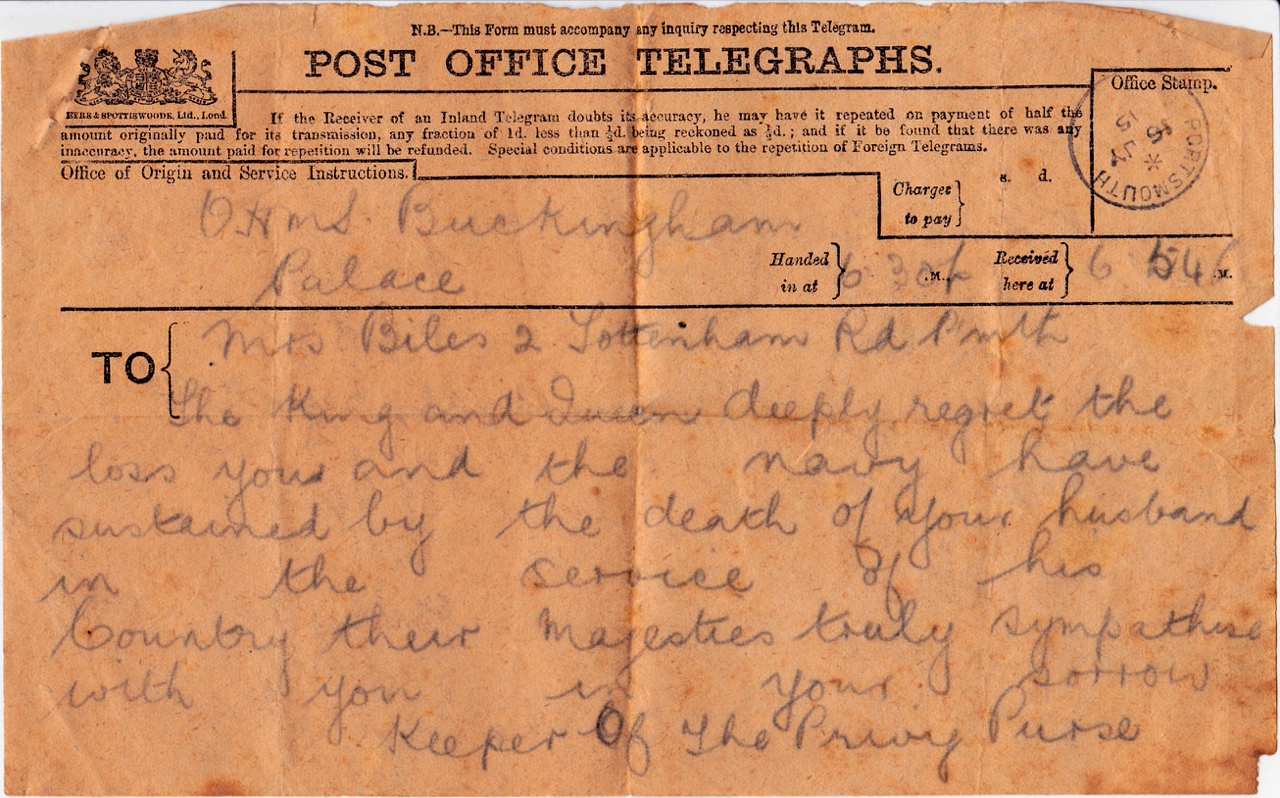 N.B.—This Form must accompany any inquiry respecting this Telegram.
POST OFFICE TELEGRAPHS.
EYRE & SPOTTISWOODE, Ltd., Lond.
If the Receiver of an Inland Telegram doubts its accuracy, he may have it repeated on payment of half the
amount originally paid for its transmission, any fraction of 1d. less than ½d. being reckoned as ½d.; and if it be found that there was any
inaccuracy, the amount paid for repetition will be refunded. Special conditions are applicable to the repetition of Foreign Telegrams.
Office Stamp.
PORTSMOUTH
15 JY 16
Office of Origin and Service Instructions.
Charges to pay
s. d.
OHMS Buckingham
Palace
Handed in at
6 30 .M.
Received here at
6 54 .M.
TO
Mrs Biles 2 Tottenham Rd Pmth
The King and Queen deeply regret the
loss you and the navy have
sustained by the death of your husband
in the service of his
Country their Majesties truly sympathise
with you in your sorrow
Keeper Of The Privy Purse